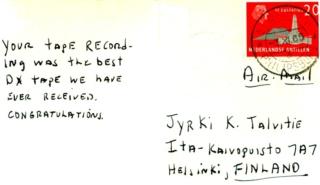 YOUR TAPE RECORD-
ING WAS THE BEST
DX TAPE WE HAVE
EVER RECEIVED.
CONGRATULATIONS.
20
NEDERLANDSE ANTILLEN
AIR MAIL
JYRKI K. TALVITIE
ITA-KAIVOPUISTO 7A7
HELSINKI, FINLAND